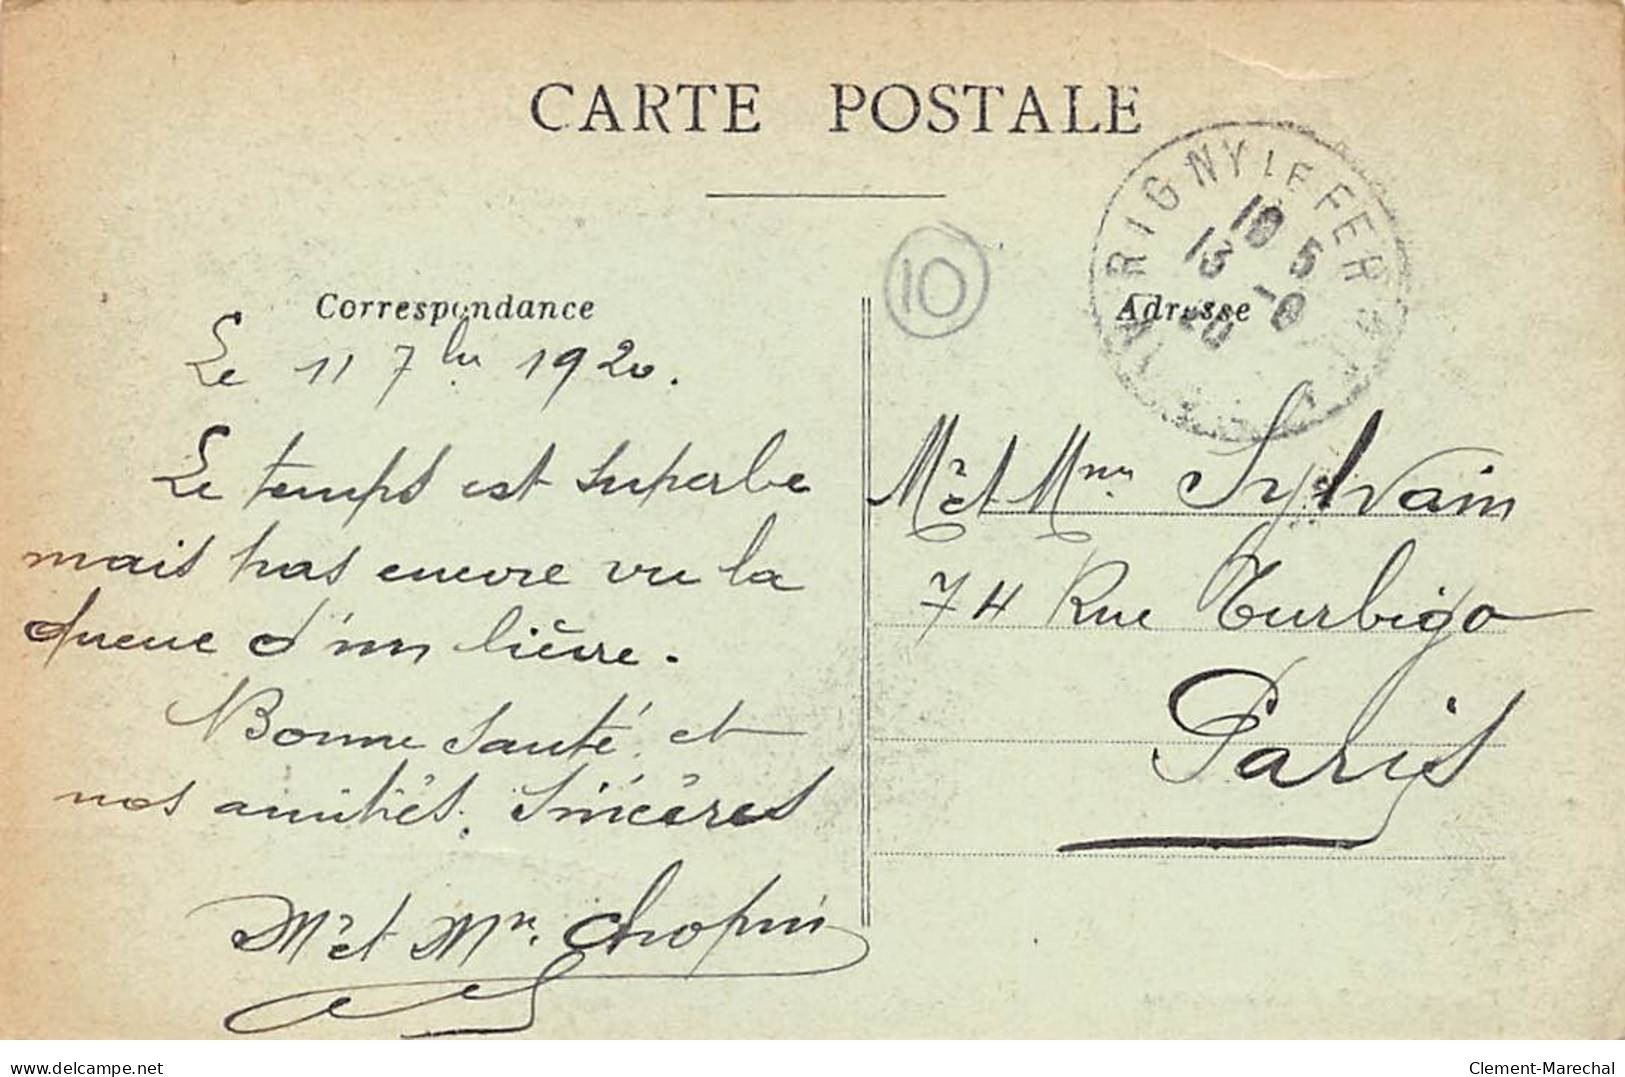 CARTE POSTALE
RIGNY LE FER
18 5
13 -9
20
10
Correspondance
Adresse
Le 11 7bre 1920.
Le temps est superbe
mais pas encore vu la
queue d'un lièvre.
Bonne santé et
nos amitiés. Sincères
Mr et Mme Chopin
Mr et Mme Sylvain
74 Rue Turbigo
Paris
www.delcampe.net
Clement-Marechal